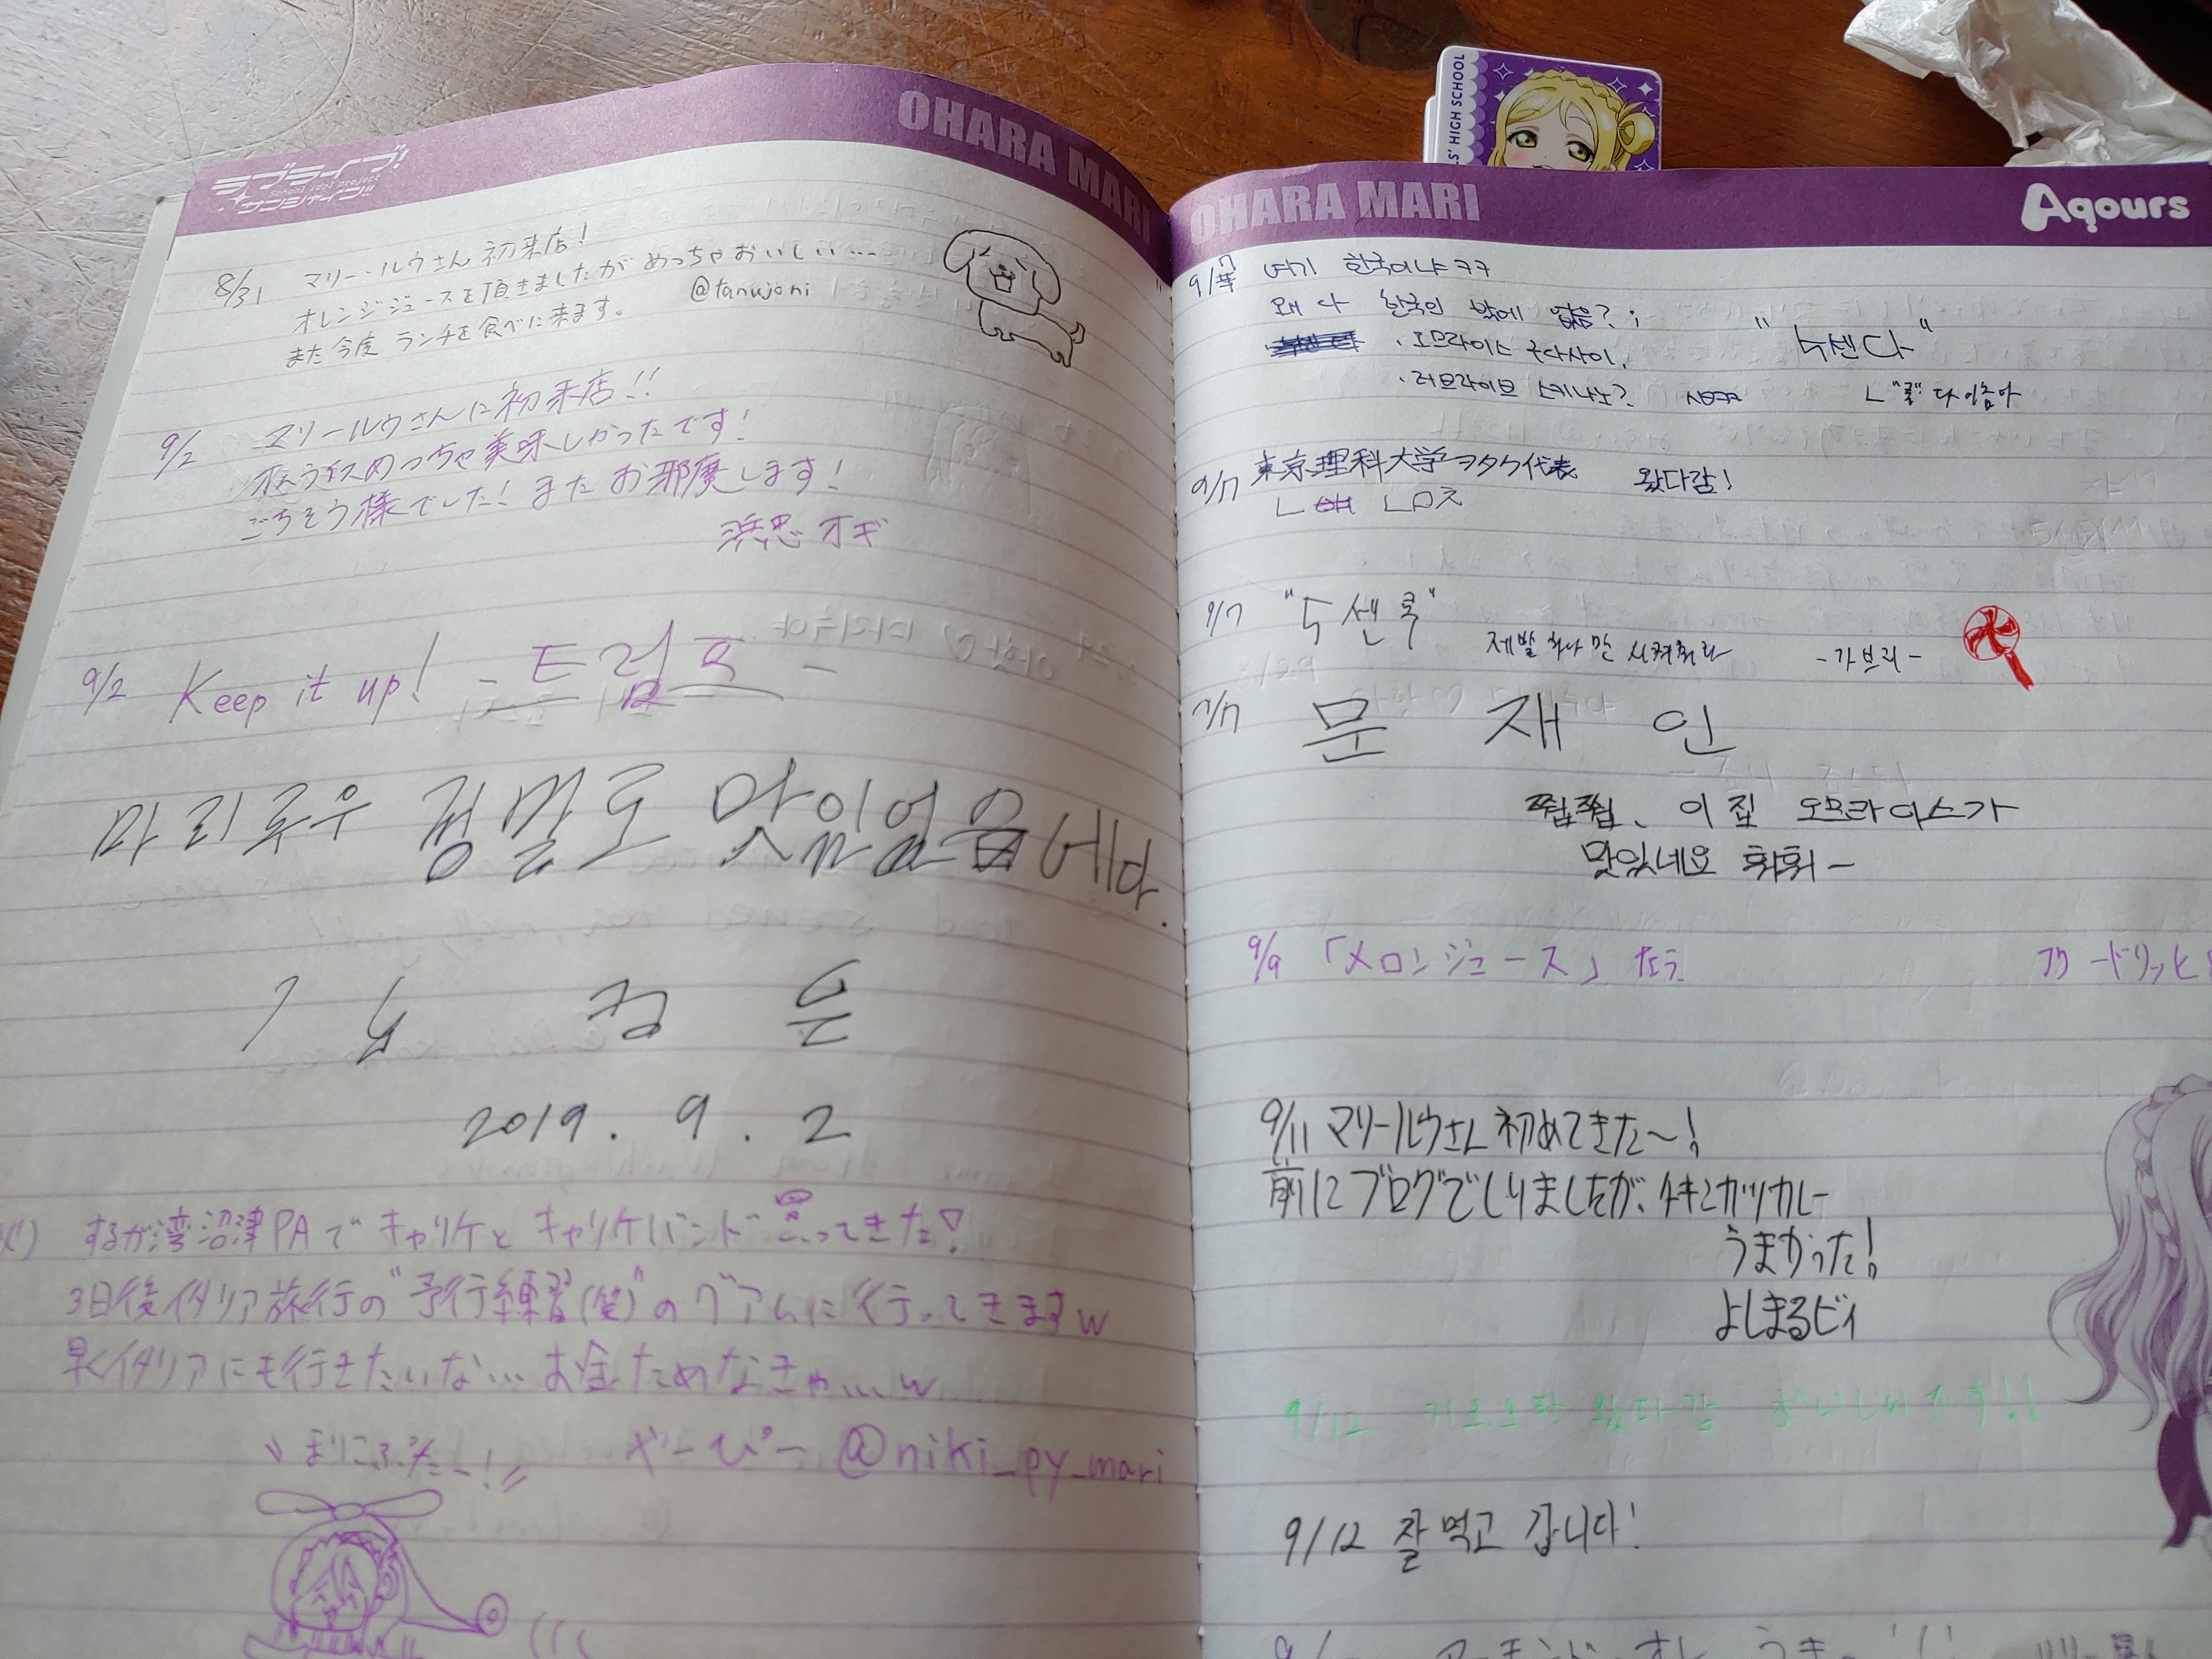 ラブライブ!
School idol project
サンシャイン!!
OHARA MARI
8/31 マリー・ルウさん 初来店!
オレンジジュースを頂きましたが めっちゃおいしい…
また今度 ランチを食べに来ます。 @tanujoni
9/2 マリールウさんに初来店!!
めっちゃ美味しかったです!
ごちそう様でした! また お邪魔します!
オギ
9/2 Keep it up! - 트럼프 -
마리루우 정말로 맛있었습네다.
김 정 은
2019. 9. 2
するが湾沼津PAで キャリケと キャリケバンド 買ってきた!
3日後イタリア旅行の "予行練習(笑)"の グアムに行ってきますw
早くイタリアにも行きたいな… お金ためなきゃ…w
やーぴー @niki_py_mari
LS' HIGH SCHOOL
OHARA MARI
Aqours
9/7 여기 한국이냐 ㅋㅋ
왜 다 한국인 밖에 없음? ;
· 오므라이스 쿠다사이.
· 러브라이브 스키나노?
"누센다"
9/7 東京理科大学 ヲタク代表 왔다감!
9/7 "누센쿡"
제발 하나만 시켜줘라 -가브리-
9/7 문 재 인
쩝쩝, 이 집 오므라이스가
맛있네요 휘휘-
9/9 「メロンジュース」 なう
9/11 マリールウさん 初めてきた〜!
前にブログでしりましたが、チキンカツカレー
うまかった!
よしまるビィ
9/12 왔다감 おいしいです!!
9/12 잘 먹고 갑니다!